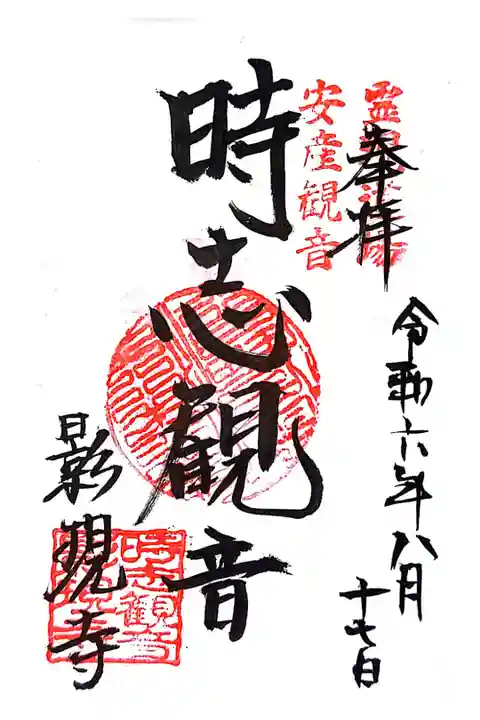 奉拝
安産観音
令和六年八月
十七日
時志観音
影現寺
時志観音